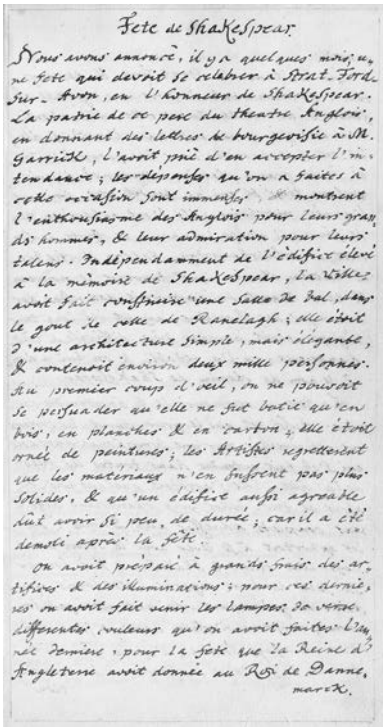 Fete de Shakespear.
Nous avons annoncé, il y a quelques mois, u-
ne fete qui devoit se celebrer à Strat-Ford
Sur-Avon, en l'honneur de Shakespear.
La patrie de ce pere du theatre Anglois,
en donnant des lettres de bourgeoisie à M.
Garrick, l'avoit prié d'en accepter l'in-
tendance; les dépenses qu'on a faites à
cette occasion sont immenses, & montrent
l'enthousiasme des Anglois pour leurs gran-
ds hommes, & leur admiration pour leurs
talens. Indépendamment de l'édifice élevé
à la mémoire de Shakespear, la Ville
avoit fait construire une Salle de bal, dans
le gout de celle de Ranelagh; elle étoit
d'une architecture simple, mais élégante,
& contenoit environ deux mille personnes.
Au premier coup d'oeil, on ne pouvoit
se persuader qu'elle ne fut batie qu'en
bois, en planches & en carton; elle étoit
ornée de peintures; les Artistes regretterent
que les matériaux n'en fussent pas plus
solides, & qu'un édifice aussi agreable
dût avoir si peu de durée; car il a été
demoli après la fête.
On avoit préparé à grands frais des ar-
tifices & des illuminations; pour ces dernie-
res on avoit fait venir les lampes de verre
differentes couleurs qu'on avoit faites l'an-
née derniere, pour la fete que la Reine d'
Angleterre avoit donnée au Roi de Danne-
marck.